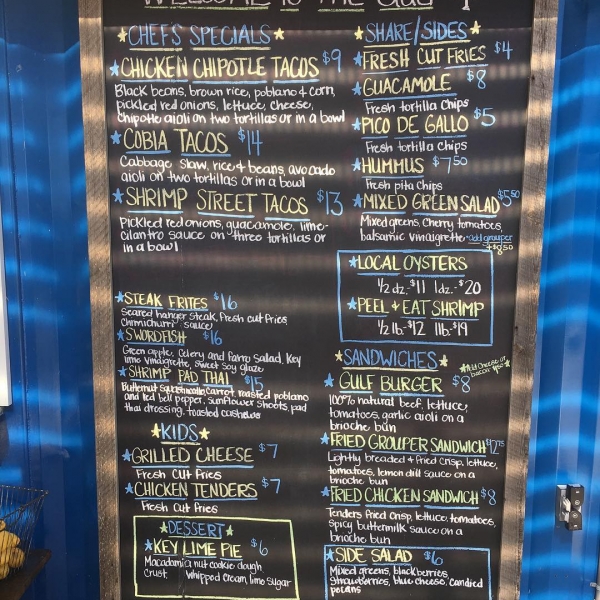 WELCOME TO THE
★CHEF'S SPECIALS★
★CHICKEN CHIPOTLE TACOS $9
Black beans, brown rice, poblano & corn,
pickled red onions, lettuce, cheese,
chipotle aioli on two tortillas or in a bowl
★COBIA TACOS $14
Cabbage slaw, rice & beans, avocado
aioli on two tortillas or in a bowl
★SHRIMP STREET TACOS $13
Pickled red onions, guacamole, lime-
cilantro sauce on three tortillas or
in a bowl
★STEAK FRITES $16
seared hanger steak, fresh cut fries
chimichurri sauce
★SWORDFISH $16
Green apple, celery and farro salad, Key
lime vinaigrette, sweet soy glaze
★SHRIMP PAD THAI $15
Butternut squash noodles, carrot, roasted poblano
and red bell pepper, sunflower shoots, pad
thai dressing, toasted cashews
★KIDS★
★GRILLED CHEESE $7
Fresh cut fries
★CHICKEN TENDERS $7
Fresh cut fries
★DESSERT★
★KEY LIME PIE $6
Macadamia nut cookie dough
crust, whipped cream, lime sugar
★SHARE/SIDES★
★FRESH CUT FRIES $4
★GUACAMOLE $8
Fresh tortilla chips
★PICO DE GALLO $5
Fresh tortilla chips
★HUMMUS $7.50
Fresh pita chips
★MIXED GREEN SALAD $5.50
Mixed greens, cherry tomatoes,
balsamic vinaigrette -add grouper
+$8.50
★LOCAL OYSTERS
1/2 dz.-$11 1dz.-$20
★PEEL & EAT SHRIMP
1/2 lb-$12 1lb-$19
★SANDWICHES★
★Add cheese or
bacon .50★
★GULF BURGER $8
100% natural beef, lettuce,
tomatoes, garlic aioli on a
brioche bun
★FRIED GROUPER SANDWICH $12.75
Lightly breaded & fried crisp, lettuce,
tomatoes, lemon dill sauce on a
brioche bun
★FRIED CHICKEN SANDWICH $8
Tenders fried crisp, lettuce, tomatoes,
spicy buttermilk sauce on a
brioche bun
★SIDE SALAD $6
Mixed greens, blackberries,
strawberries, blue cheese, candied
pecans